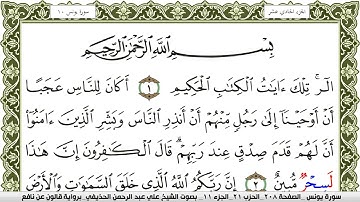 الجزء الحادي عشر
سورة يونس ١٠
بِسْمِ اللَّهِ الرَّحْمَٰنِ الرَّحِيمِ
الٓرۚ تِلْكَ ءَايَٰتُ الْكِتَٰبِ الْحَكِيمِ ١ أَكَانَ لِلنَّاسِ عَجَبًا
أَنْ أَوْحَيْنَا إِلَىٰ رَجُلٍ مِّنْهُمْ أَنْ أَنذِرِ النَّاسَ وَبَشِّرِ الَّذِينَ ءَامَنُوٓاْ
أَنَّ لَهُمْ قَدَمَ صِدْقٍ عِندَ رَبِّهِمْ قَالَ الْكَٰفِرُونَ إِنَّ هَٰذَا
لَسِحْرٌ مُّبِينٌ ٢ إِنَّ رَبَّكُمُ اللَّهُ الَّذِي خَلَقَ السَّمَٰوَٰتِ وَالْأَرْضَ
سورة يونس - الصفحة ٢٠٨ الحزب ٢١ الجزء ١١ بصوت الشيخ علي عبد الرحمن الحذيفي برواية قالون عن نافع